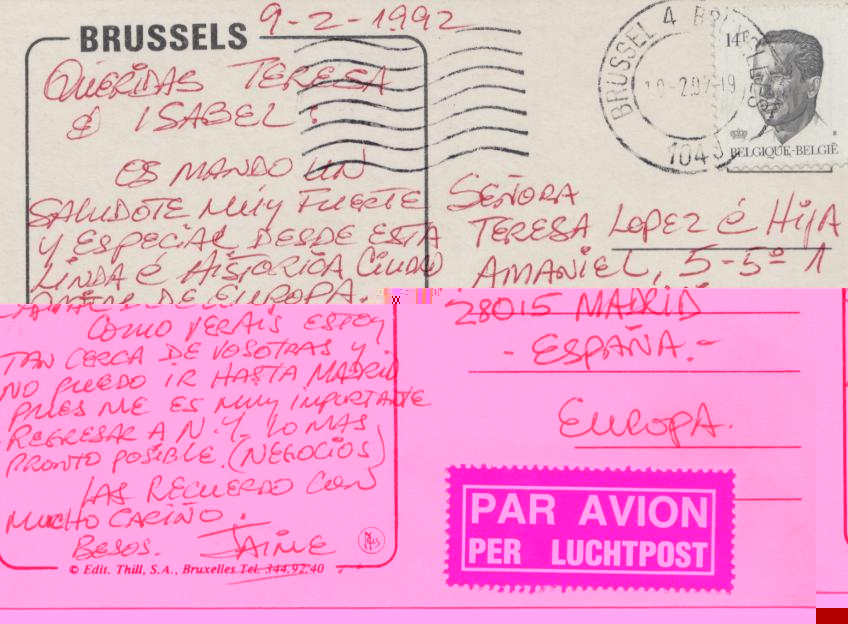 9-2-1992
BRUSSELS
QUERIDAS TERESA
é ISABEL:
OS MANDO UN
SALUDOTE MUY FUERTE
Y ESPECIAL DESDE ESTA
LINDA é HISTORICA CIUDAD
DE EUROPA.
COMO VERAIS ESTOY
TAN CERCA DE VOSOTRAS Y
NO PUEDO IR HASTA MADRID
PUES ME ES MUY IMPORTANTE
REGRESAR A N.Y. LO MAS
PRONTO POSIBLE. (NEGOCIOS)
LAS RECUERDO CON
MUCHO CARIÑO.
BESOS. JAIME
© Edit. Thill, S.A., Bruxelles Tel. 344.92.40
BRUSSEL 4 BRUXELLES
1040
14F
BELGIQUE-BELGIË
SEÑORA
TERESA LOPEZ é HIJA
AMANIEL, 5-5º 1
28015 MADRID
- ESPAÑA.-
EUROPA.
PAR AVION
PER LUCHTPOST